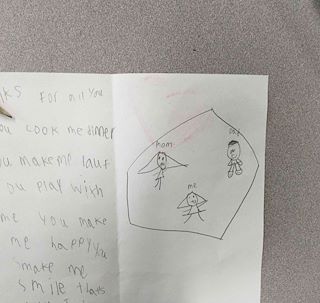 For all You
You cook me dinner
You make me lauf
You play with
me You make
me happy You
smake me
smile thats
mom
me